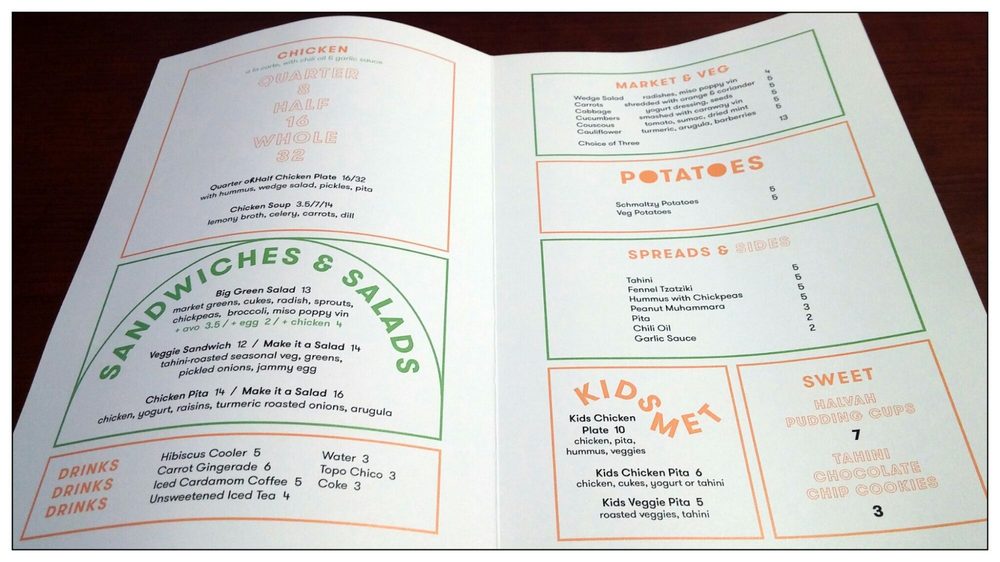 CHICKEN
a la carte, with chili oil & garlic sauce
QUARTER
8
HALF
16
WHOLE
32
Quarter or Half Chicken Plate 16/32
with hummus, wedge salad, pickles, pita
Chicken Soup 3.5/7/14
lemony broth, celery, carrots, dill
SANDWICHES & SALADS
Big Green Salad 13
market greens, cukes, radish, sprouts,
chickpeas, broccoli, miso poppy vin
+ avo 3.5 / + egg 2 / + chicken 4
Veggie Sandwich 12 / Make it a Salad 14
tahini-roasted seasonal veg, greens,
pickled onions, jammy egg
Chicken Pita 14 / Make it a Salad 16
chicken, yogurt, raisins, turmeric roasted onions, arugula
DRINKS
DRINKS
DRINKS
Hibiscus Cooler 5
Carrot Gingerade 6
Iced Cardamom Coffee 5
Unsweetened Iced Tea 4
Water 3
Topo Chico 3
Coke 3
MARKET & VEG
Wedge Salad radishes, miso poppy vin 4
Carrots shredded with orange & coriander 5
Cabbage yogurt dressing, seeds 5
Cucumbers smashed with caraway vin 5
Couscous tomato, sumac, dried mint 5
Cauliflower turmeric, arugula, barberries 5
Choice of Three 13
POTATOES
Schmaltzy Potatoes 5
Veg Potatoes 5
SPREADS & SIDES
Tahini 5
Fennel Tzatziki 5
Hummus with Chickpeas 5
Peanut Muhammara 5
Pita 3
Chili Oil 2
Garlic Sauce 2
KIDSMET
Kids Chicken
Plate 10
chicken, pita,
hummus, veggies
Kids Chicken Pita 6
chicken, cukes, yogurt or tahini
Kids Veggie Pita 5
roasted veggies, tahini
SWEET
HALVAH
PUDDING CUPS
7
TAHINI
CHOCOLATE
CHIP COOKIES
3